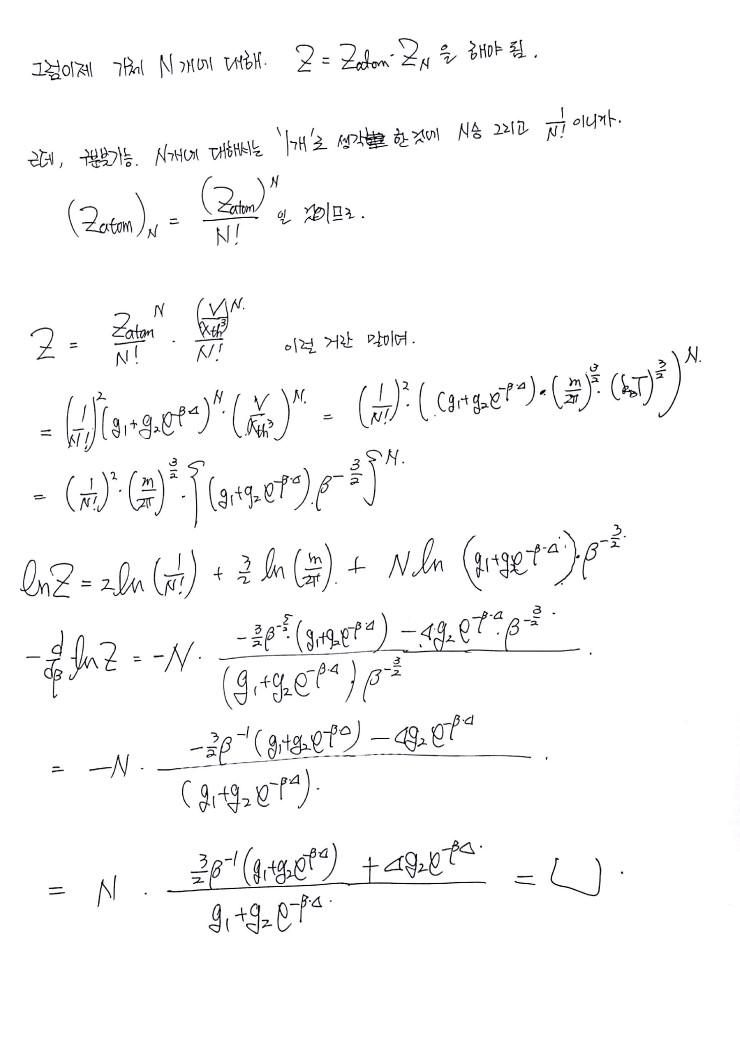 그럼이제 기체 N개에 대해. Z = Zatom · Z_N 을 해야 됨.
근데, 구분불가능. N개에 대해서는 '1개'로 생각한 것에 N승 그리고 1/N! 이니까.
(Zatom)_N = (Zatom)^N / N! 일 것이므로.
Z = Zatom^N / N! · (V/λth³)^N / N! 이런 거란 말이여.
= (1/N!)² (g₁+g₂e^(-βΔ))^N · (V/λth³)^N = (1/N!)² · ((g₁+g₂e^(-βΔ)) · (m/2π)^(3/2) · (k_BT)^(3/2))^N.
= (1/N!)² · (m/2π)^(3/2) · {(g₁+g₂e^(-βΔ)) · β^(-3/2)}^N.
lnZ = 2ln(1/N!) + 3/2 ln(m/2π) + N ln (g₁+g₂e^(-β·Δ)) · β^(-3/2)
-d/dβ lnZ = -N · (-3/2 β^(-5/2) (g₁+g₂e^(-βΔ)) - Δg₂e^(-βΔ) β^(-3/2)) / ((g₁+g₂e^(-βΔ)) β^(-3/2)).
= -N · (-3/2 β^(-1) (g₁+g₂e^(-βΔ)) - Δg₂e^(-βΔ)) / (g₁+g₂e^(-βΔ)).
= N · (3/2 β^(-1) (g₁+g₂e^(-βΔ)) + Δg₂e^(-βΔ)) / (g₁+g₂e^(-β·Δ)) = U.